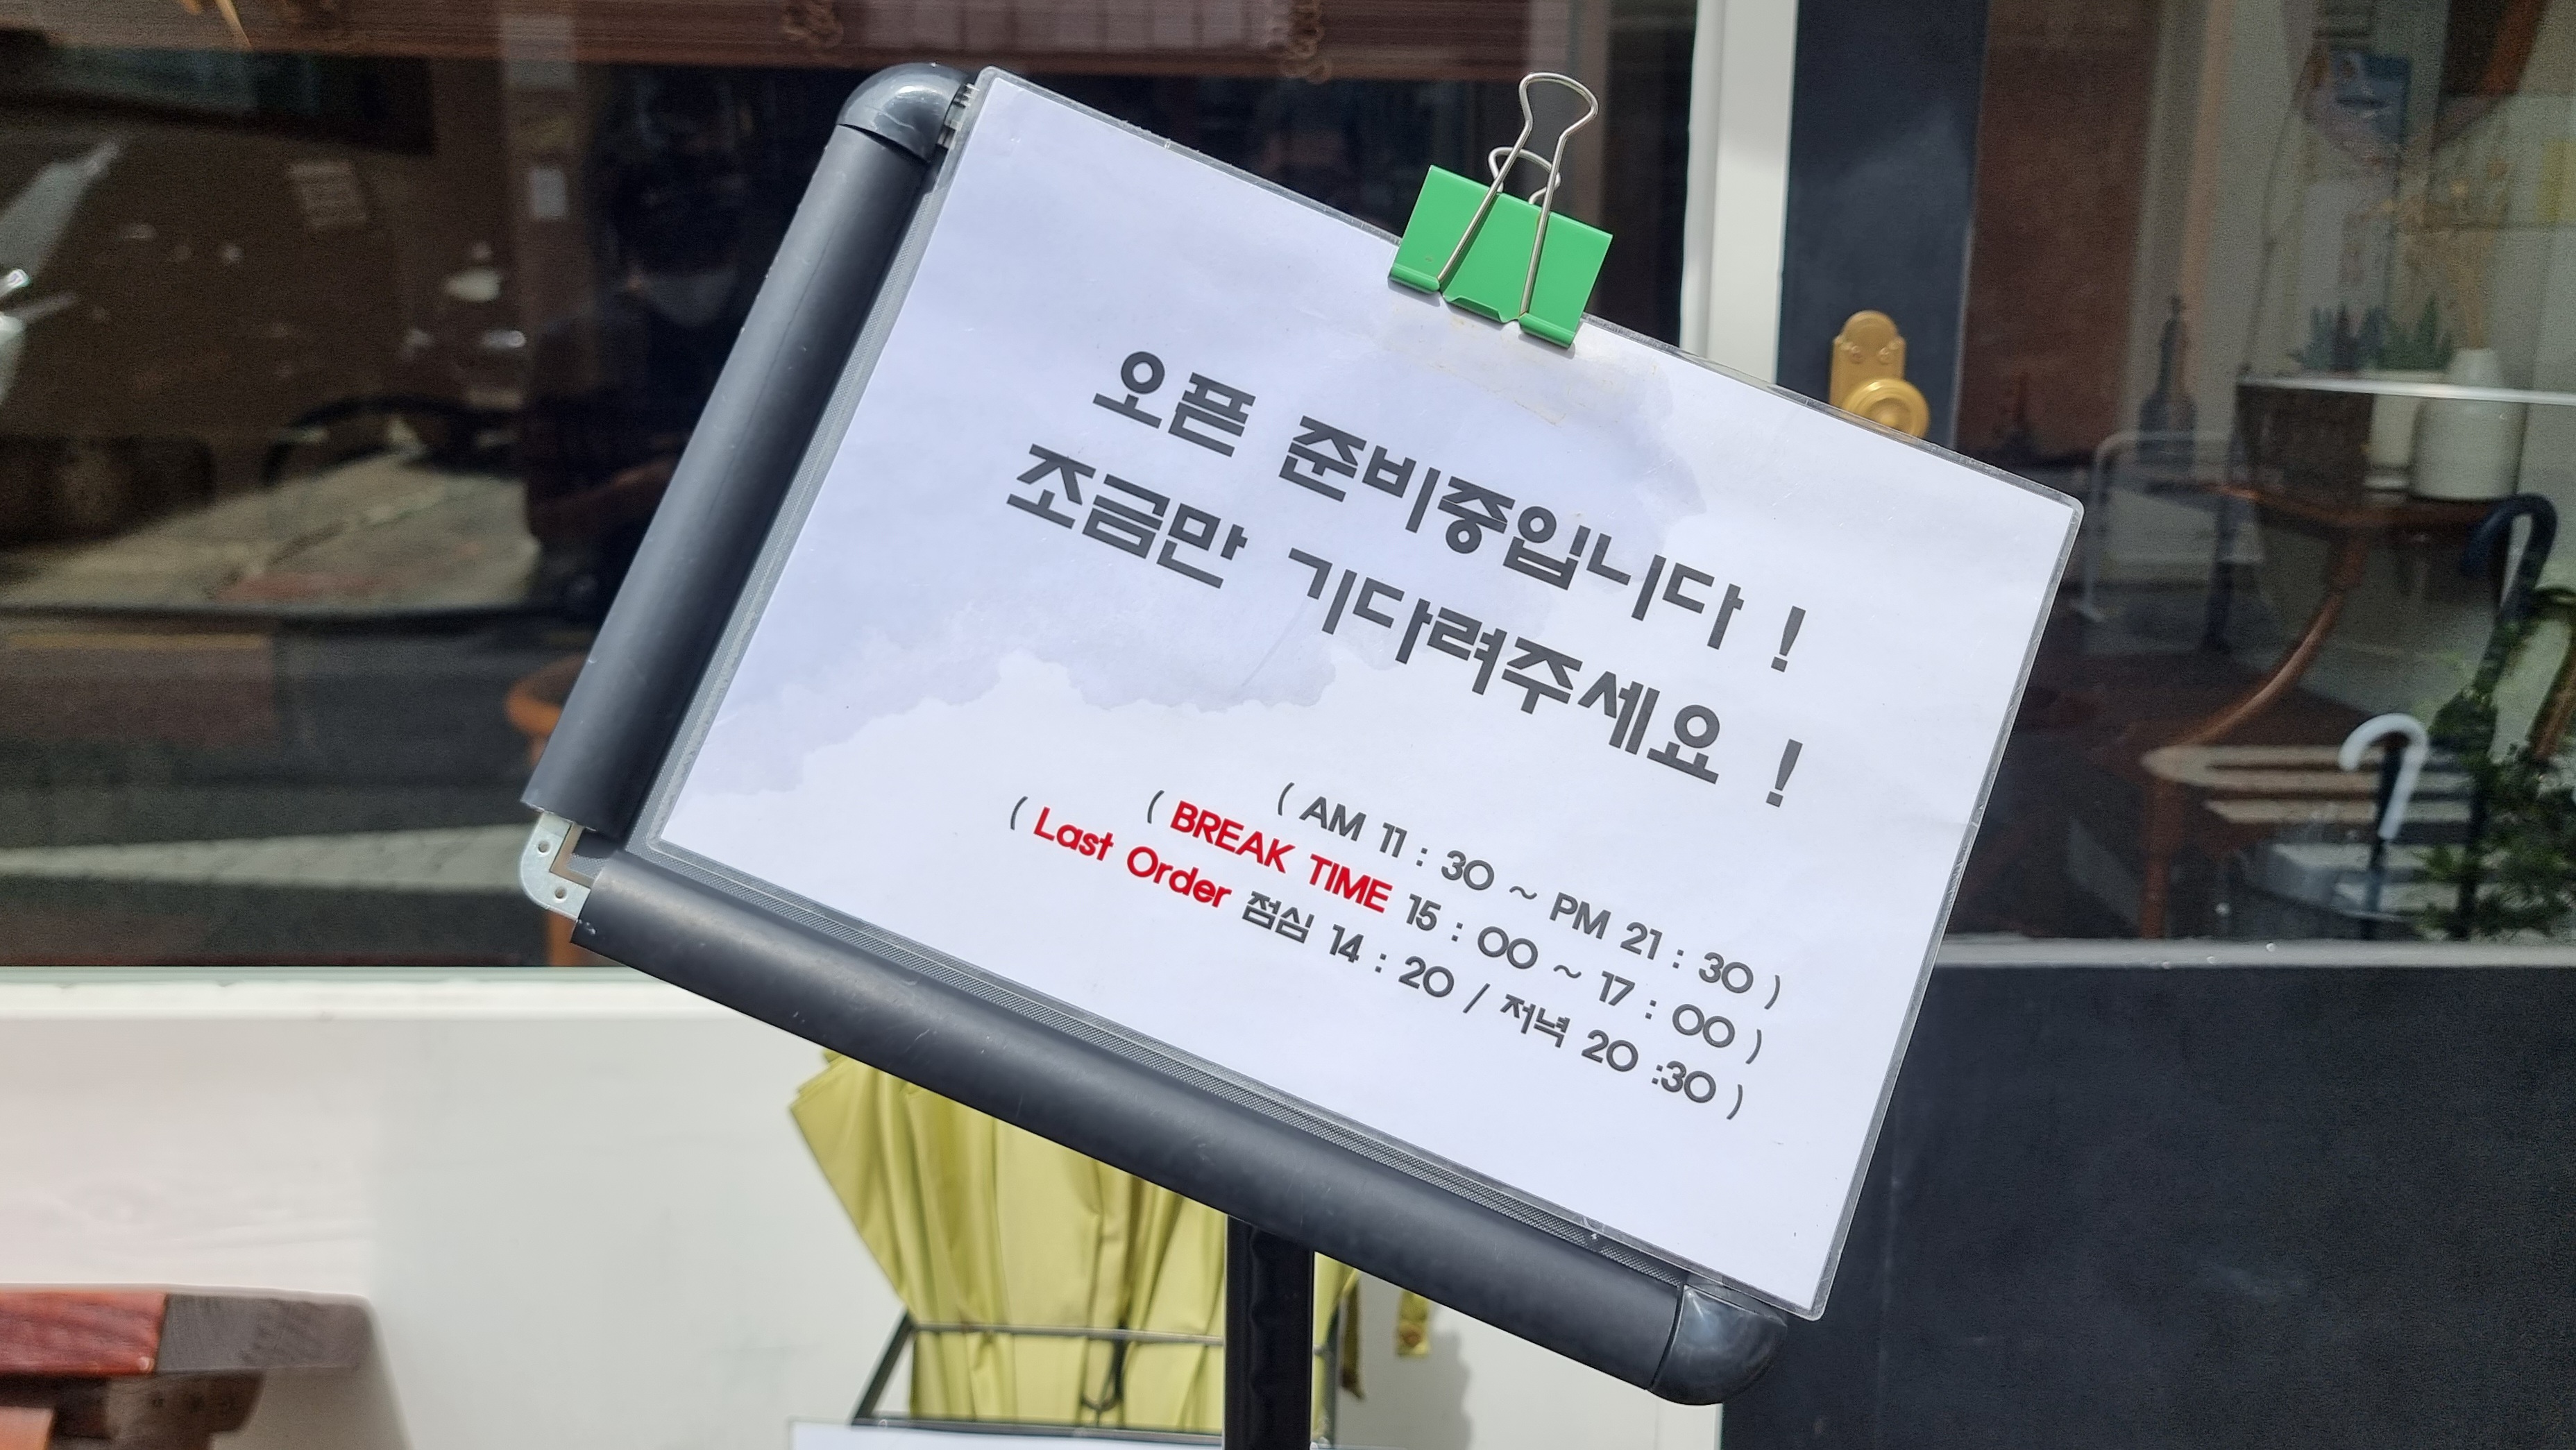 오픈 준비중입니다 !
조금만 기다려주세요 !
( AM 11 : 30 ~ PM 21 : 30 )
( BREAK TIME 15 : 00 ~ 17 : 00 )
( Last Order 점심 14 : 20 / 저녁 20 :30 )